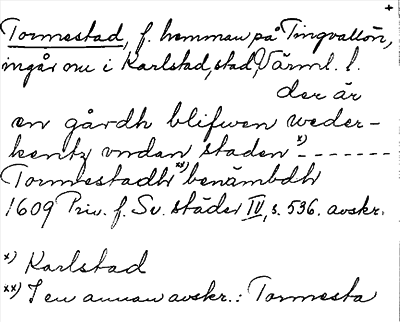 +
Tormestad, f. hemman på Tingvallön,
ingår nu i Karlstad, stad, Värml. l.
der är
en gårdh blifwen weder-
kentz vndan staden x) - - - - - - -
Tormestadh xx) benämbdh
1609 Priv. f. Sv. städer IV, s. 536. avskr.
x) Karlstad
xx) I en annan avskr.: Tormesta